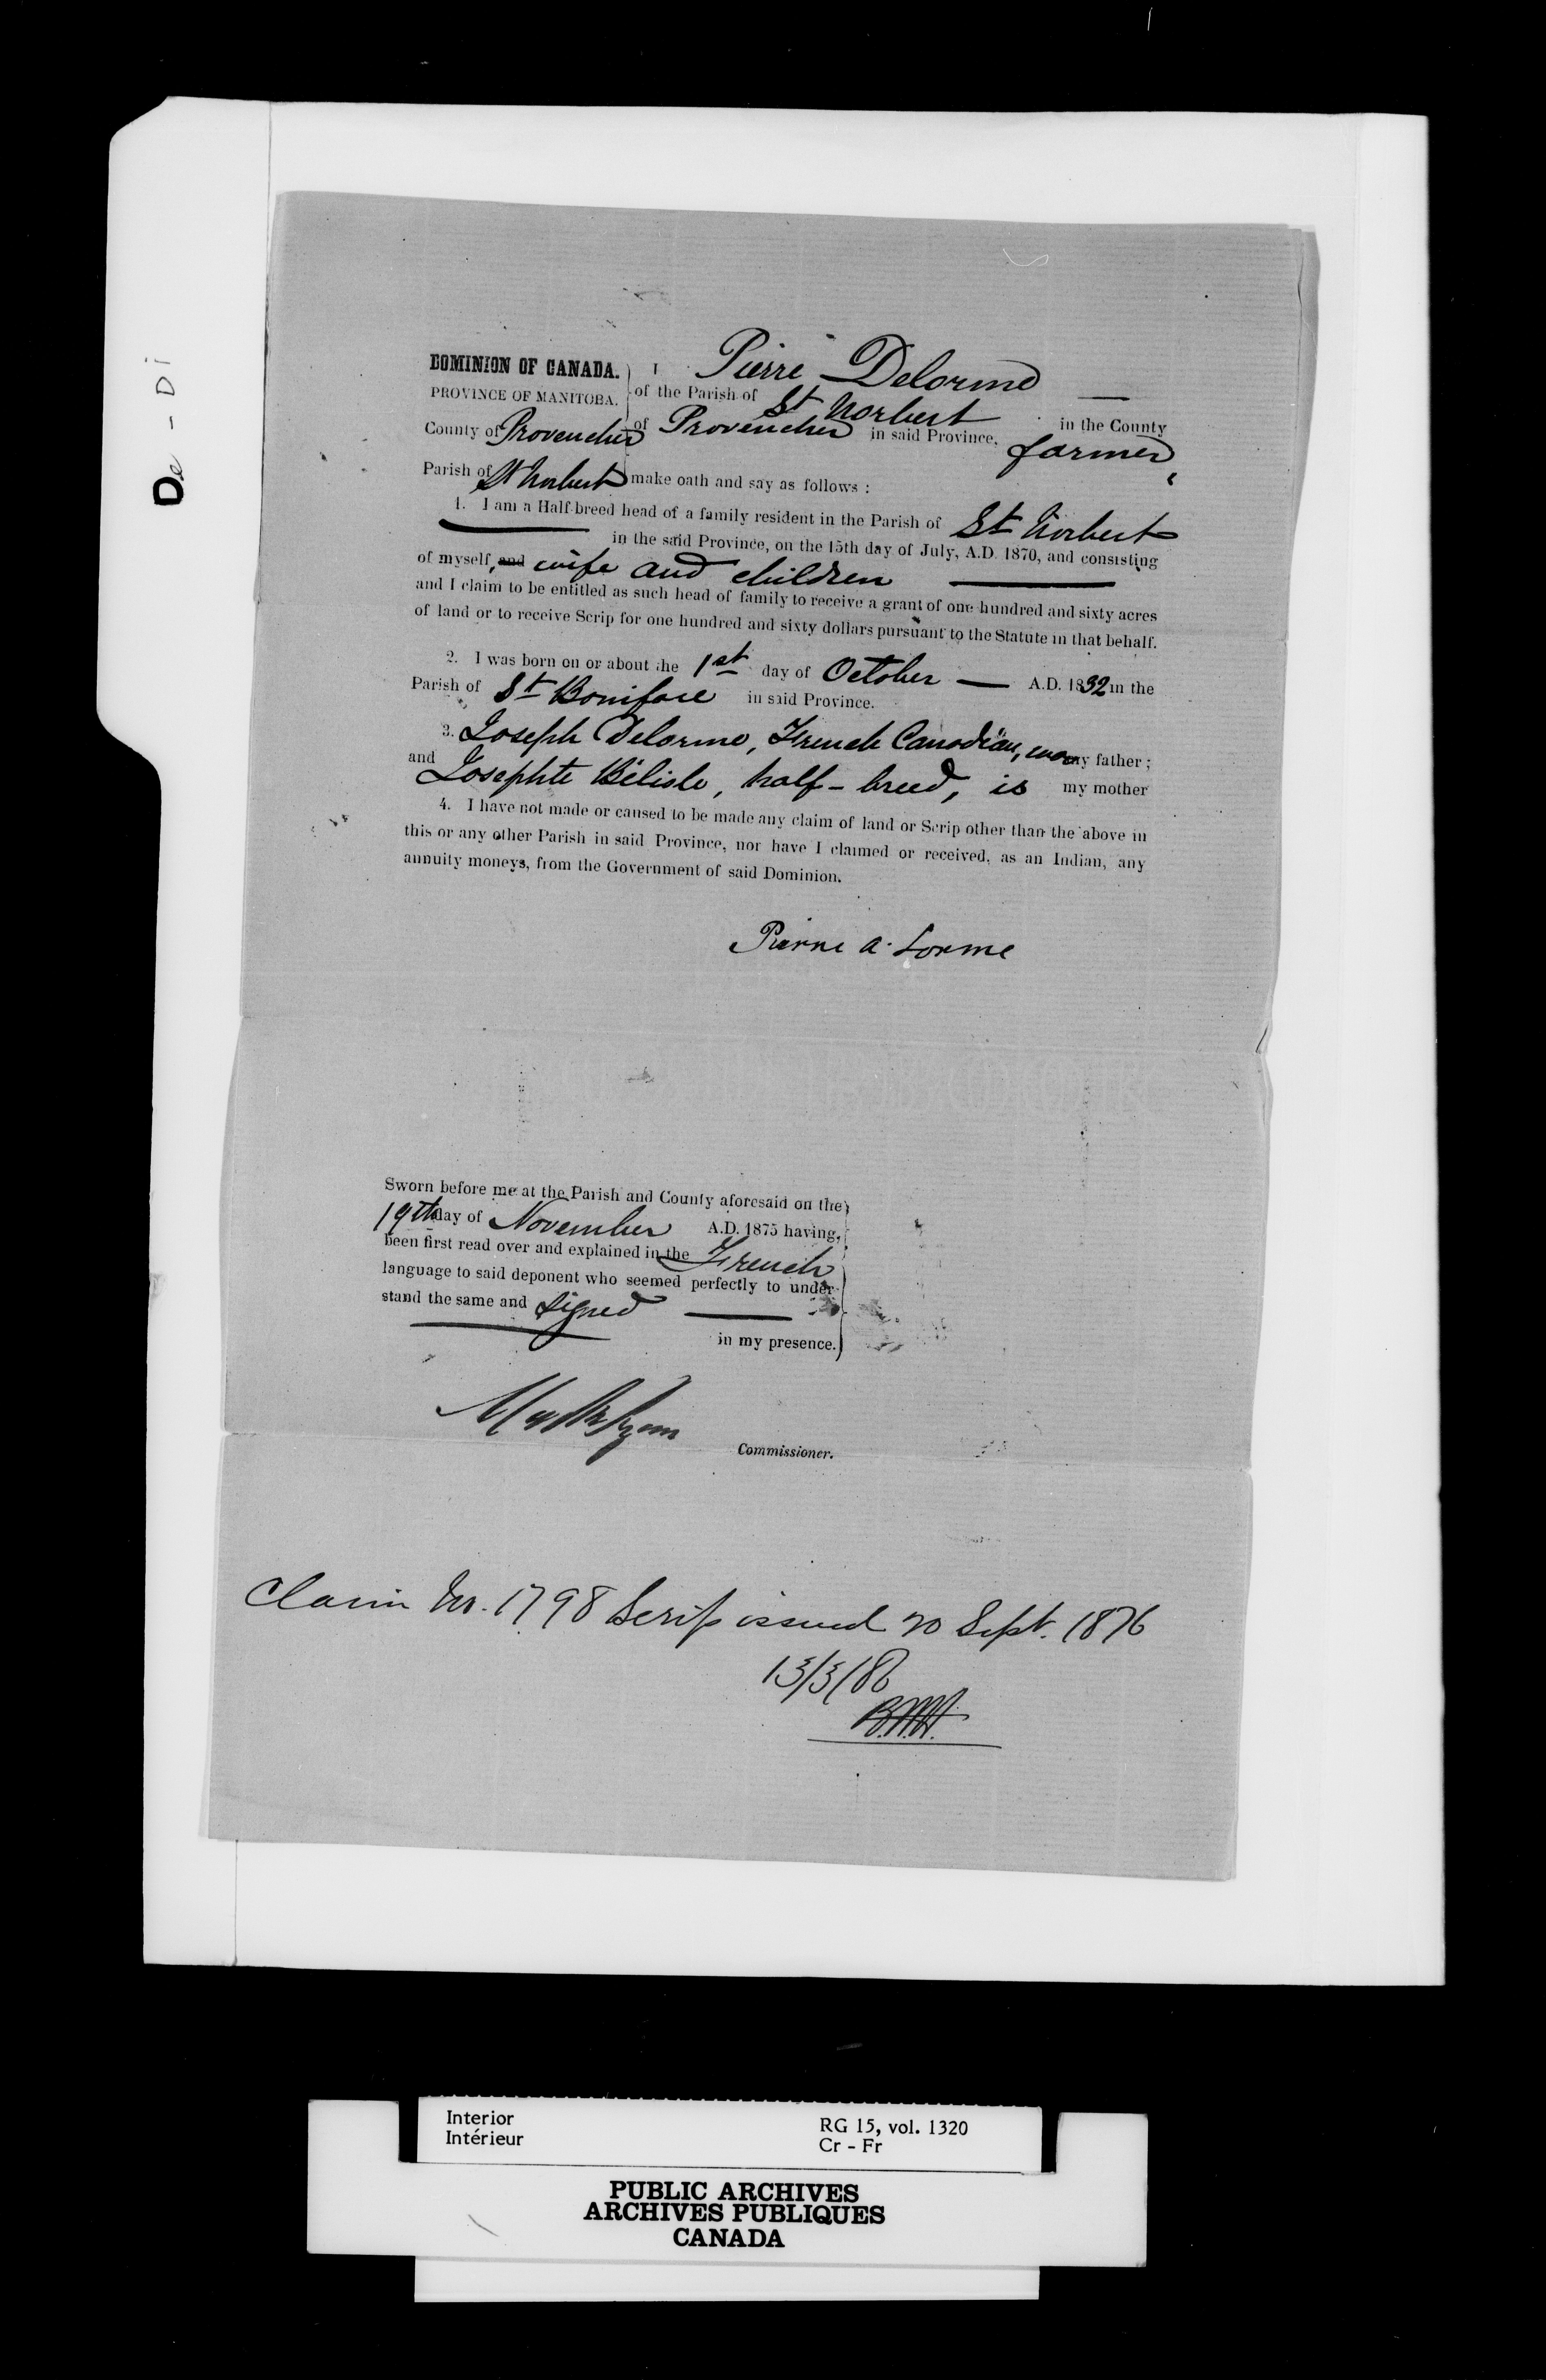 De - Di
DOMINION OF CANADA. I Pierre Delorme
PROVINCE OF MANITOBA. of the Parish of St Norbert in the County
County of Provencher of Provencher in said Province, farmer,
Parish of St Norbert make oath and say as follows :
1. I am a Half-breed head of a family resident in the Parish of St Norbert
in the said Province, on the 15th day of July, A.D. 1870, and consisting
of myself, and wife and children
and I claim to be entitled as such head of family to receive a grant of one hundred and sixty acres
of land or to receive Scrip for one hundred and sixty dollars pursuant to the Statute in that behalf.
2. I was born on or about the 1st day of October A.D. 1832 in the
Parish of St Boniface in said Province.
3. Joseph Delorme, French Canadian, was my father ;
and Josephte Bélisle, half-breed, is my mother
4. I have not made or caused to be made any claim of land or Scrip other than the above in
this or any other Parish in said Province, nor have I claimed or received, as an Indian, any
annuity moneys, from the Government of said Dominion.
Pierre a. Lorme
Sworn before me at the Parish and County aforesaid on the
19th day of November A.D. 1875 having,
been first read over and explained in the French
language to said deponent who seemed perfectly to under-
stand the same and signed
in my presence.
Commissioner.
Claim No. 1798 Scrip issued 20 Sept. 1876
13/3/86
Interior
Intérieur
RG 15, vol. 1320
Cr - Fr
PUBLIC ARCHIVES
ARCHIVES PUBLIQUES
CANADA